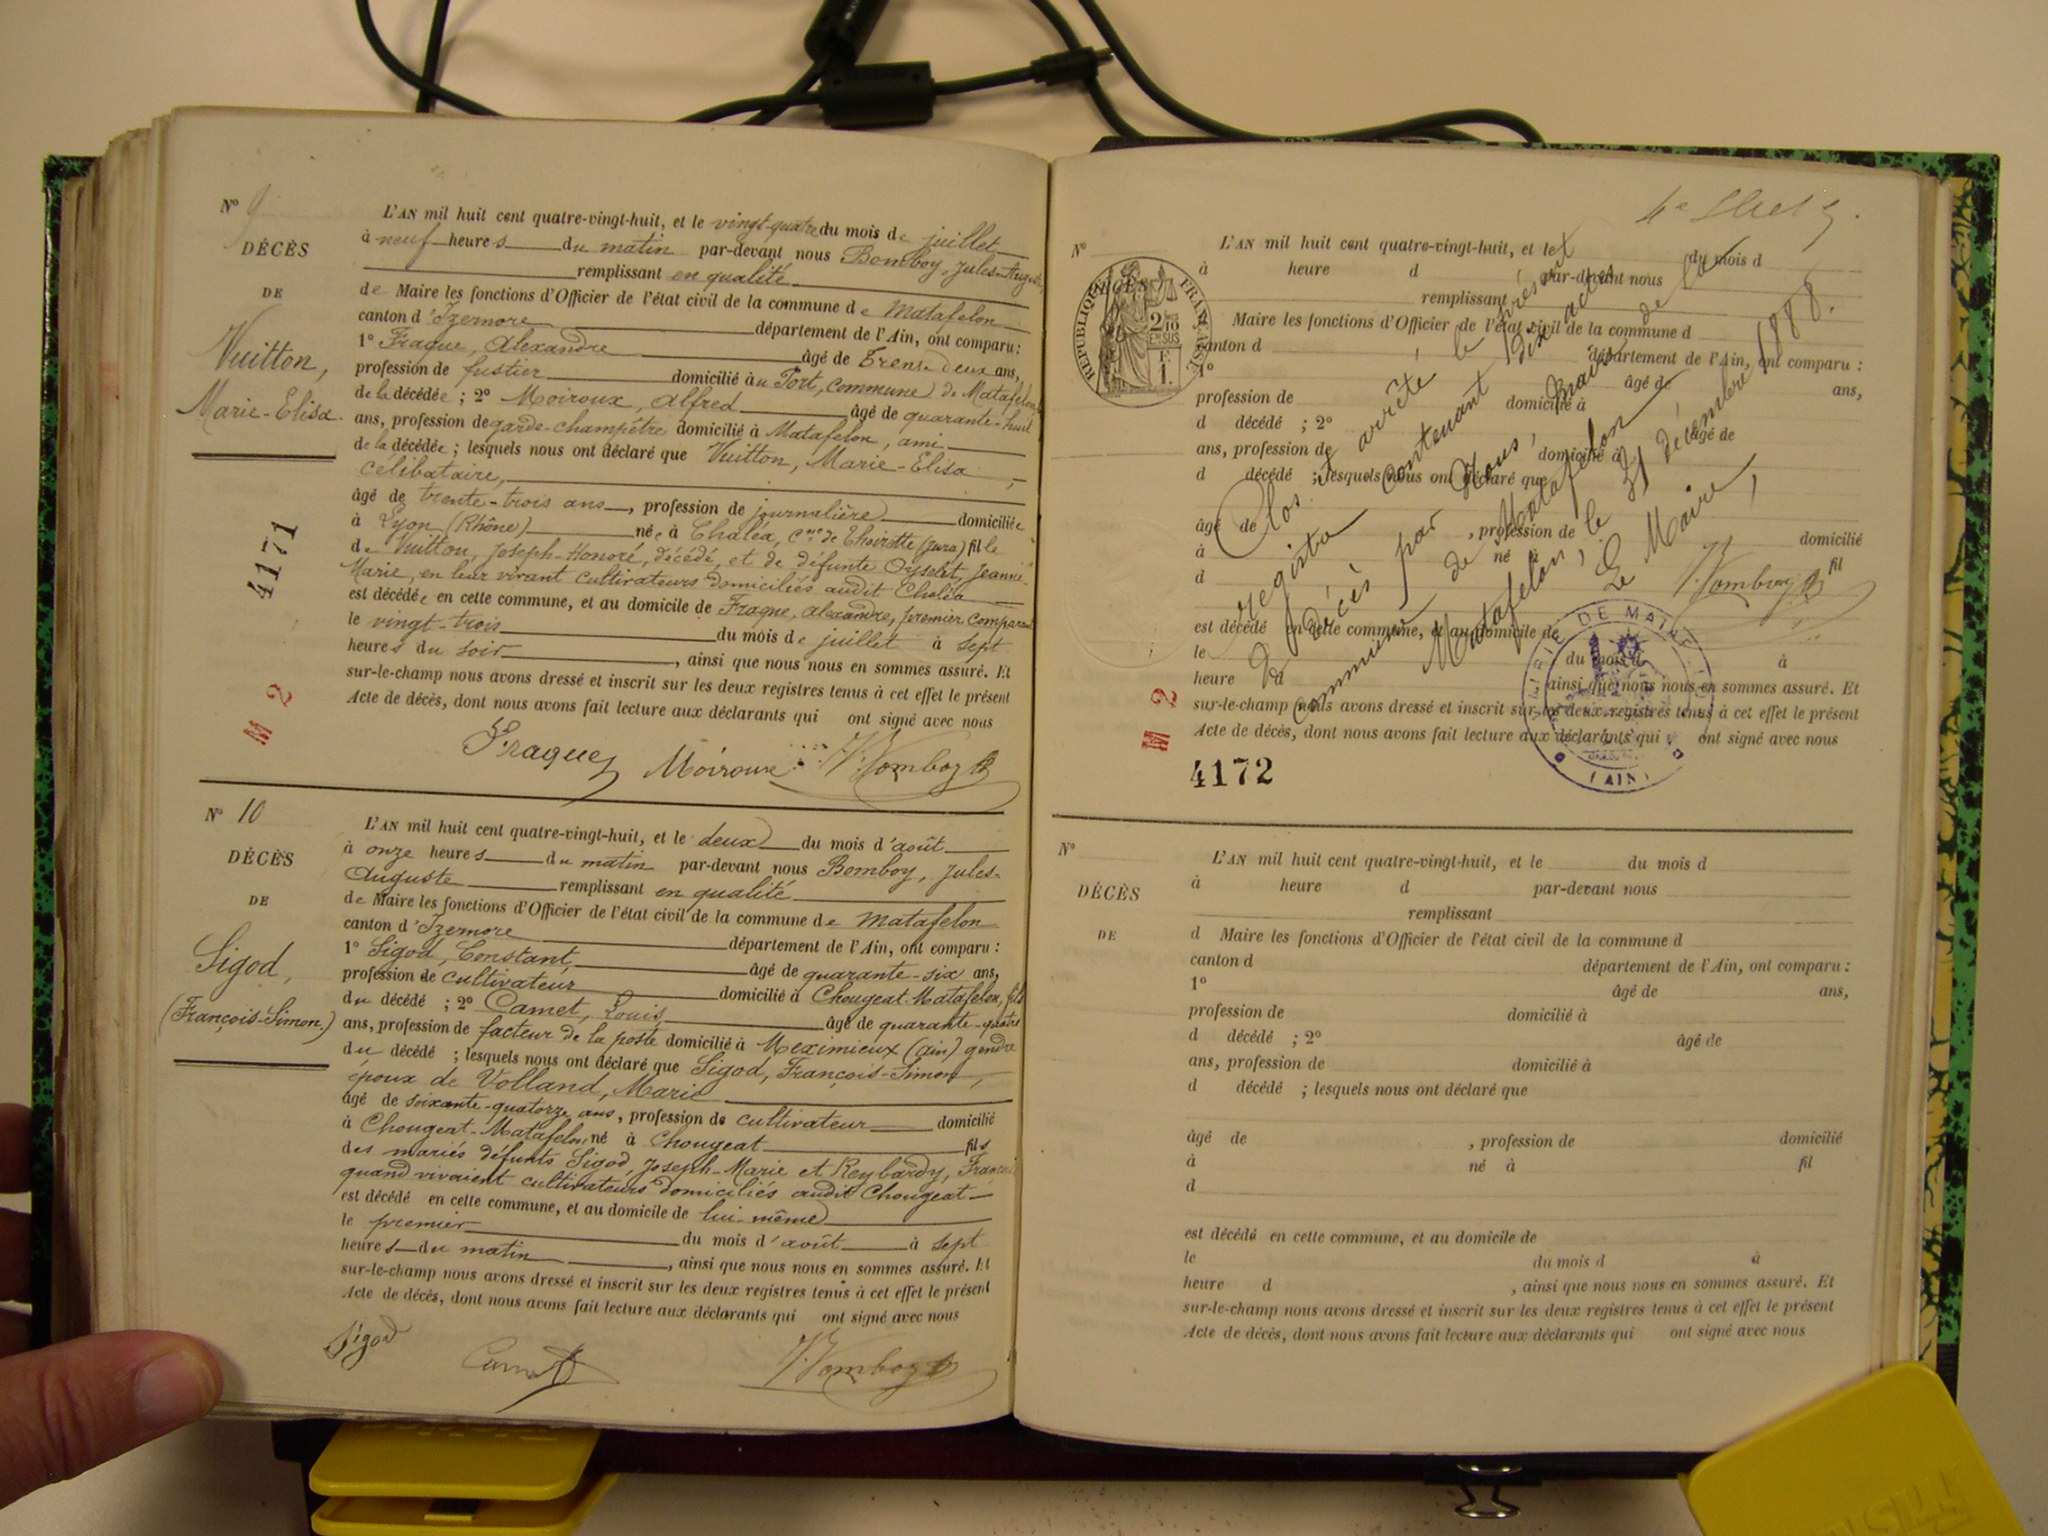 N° 9
DÉCÈS
DE
Vuitton,
Marie-Elisa
4171
M 2
L'AN mil huit cent quatre-vingt-huit, et le vingt-quatre du mois de juillet
à neuf heures du matin par-devant nous Bomboy, Jules-Auguste
remplissant en qualité
de Maire les fonctions d'Officier de l'état civil de la commune de Matafelon
canton d'Izernore département de l'Ain, ont comparu :
1° Fraque, Alexandre âgé de Trente-deux ans,
profession de fustier domicilié au Port, commune de Matafelon
de la décédée ; 2° Moiroux, Alfred âgé de quarante-huit
ans, profession de garde-champêtre domicilié à Matafelon, ami
de la décédée ; lesquels nous ont déclaré que Vuitton, Marie-Elisa
célibataire,
âgé de trente-trois ans, profession de journalière domiciliée
à Lyon (Rhône) née à Chaléa, cne de Thoirette (Jura) fille
de Vuitton, Joseph-Honoré, décédé, et de défunte Oyselet, Jeanne-
Marie, en leur vivant cultivateurs domiciliés audit Chaléa
est décédée en cette commune, et au domicile de Fraque, Alexandre, premier comparant
le vingt-trois du mois de juillet à sept
heures du soir, ainsi que nous nous en sommes assuré. Et
sur-le-champ nous avons dressé et inscrit sur les deux registres tenus à cet effet le présent
Acte de décès, dont nous avons fait lecture aux déclarants qui ont signé avec nous
Fraque Moiroux J. Bomboy
N° 10
DÉCÈS
DE
Sigod,
(François-Simon.)
L'AN mil huit cent quatre-vingt-huit, et le deux du mois d'août
à onze heures du matin par-devant nous Bomboy, Jules-
Auguste remplissant en qualité
de Maire les fonctions d'Officier de l'état civil de la commune de Matafelon
canton d'Izernore département de l'Ain, ont comparu :
1° Sigod, Constant, âgé de quarante-six ans,
profession de cultivateur domicilié à Chougeat-Matafelon, fils
du décédé ; 2° Camet, Louis âgé de quarante-quatre
ans, profession de facteur de la poste domicilié à Meximieux (Ain) gendre
du décédé ; lesquels nous ont déclaré que Sigod, François-Simon,
époux de Volland, Marie
âgé de soixante-quatorze ans, profession de cultivateur domicilié
à Chougeat-Matafelon né à Chougeat fils
des mariés défunts Sigod, Joseph-Marie et Reybardy,
quand vivaient cultivateurs domiciliés audit Chougeat
est décédé en cette commune, et au domicile de lui-même
le premier du mois d'août à sept
heures du matin, ainsi que nous nous en sommes assuré. Et
sur-le-champ nous avons dressé et inscrit sur les deux registres tenus à cet effet le présent
Acte de décès, dont nous avons fait lecture aux déclarants qui ont signé avec nous
Sigod Camet J. Bomboy
N°
DÉCÈS
RÉPUBLIQUE FRANÇAISE
2/10 EN SUS
1 F.
L'AN mil huit cent quatre-vingt-huit, et le du mois d
à heure d par-devant nous
remplissant
Maire les fonctions d'Officier de l'état civil de la commune d
canton d département de l'Ain, ont comparu :
1° âgé de ans,
profession de domicilié à
d décédé ; 2° âgé de
ans, profession de domicilié à
d décédé ; lesquels nous ont déclaré que
âgé de , profession de domicilié
à né à fil
d
est décédé en cette commune, et au domicile de
le du mois d à
heure d ainsi que nous nous en sommes assuré. Et
sur-le-champ nous avons dressé et inscrit sur les deux registres tenus à cet effet le présent
Acte de décès, dont nous avons fait lecture aux déclarants qui ont signé avec nous
Clos et arrêté le présent
registre contenant dix actes
de décès par Nous, Maire de la
commune de Matafelon
Matafelon, le 31 décembre 1888.
Le Maire,
J. Bomboy
MAIRIE DE MATAFELON
(AIN)
M 2
4172
N°
DÉCÈS
DE
L'AN mil huit cent quatre-vingt-huit, et le du mois d
à heure d par-devant nous
remplissant
d Maire les fonctions d'Officier de l'état civil de la commune d
canton d département de l'Ain, ont comparu :
1° âgé de ans,
profession de domicilié à
d décédé ; 2° âgé de
ans, profession de domicilié à
d décédé ; lesquels nous ont déclaré que
âgé de , profession de domicilié
à né à fil
d
est décédé en cette commune, et au domicile de
le du mois d à
heure d , ainsi que nous nous en sommes assuré. Et
sur-le-champ nous avons dressé et inscrit sur les deux registres tenus à cet effet le présent
Acte de décès, dont nous avons fait lecture aux déclarants qui ont signé avec nous